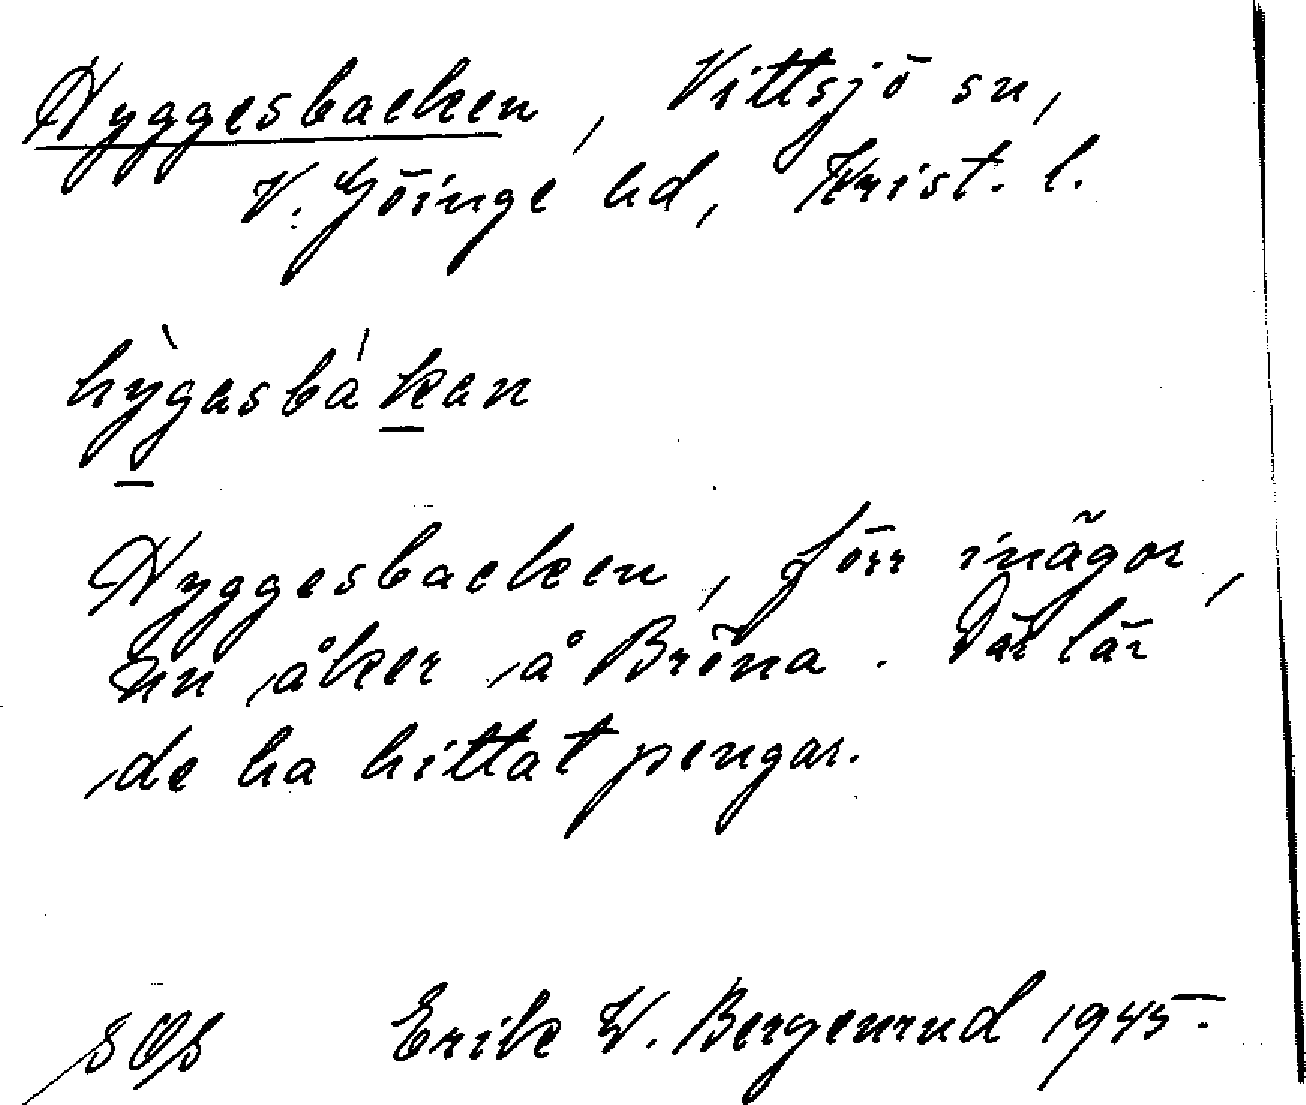 Hyggesbacken, Vittsjö sn,
V. Göinge hd, Krist. l.
hỳgasbákan
Hyggesbacken, förr inägor,
nu åker å Bröna. Där lär
de ha hittat pengar.
Erik W. Bergenrud 1945.